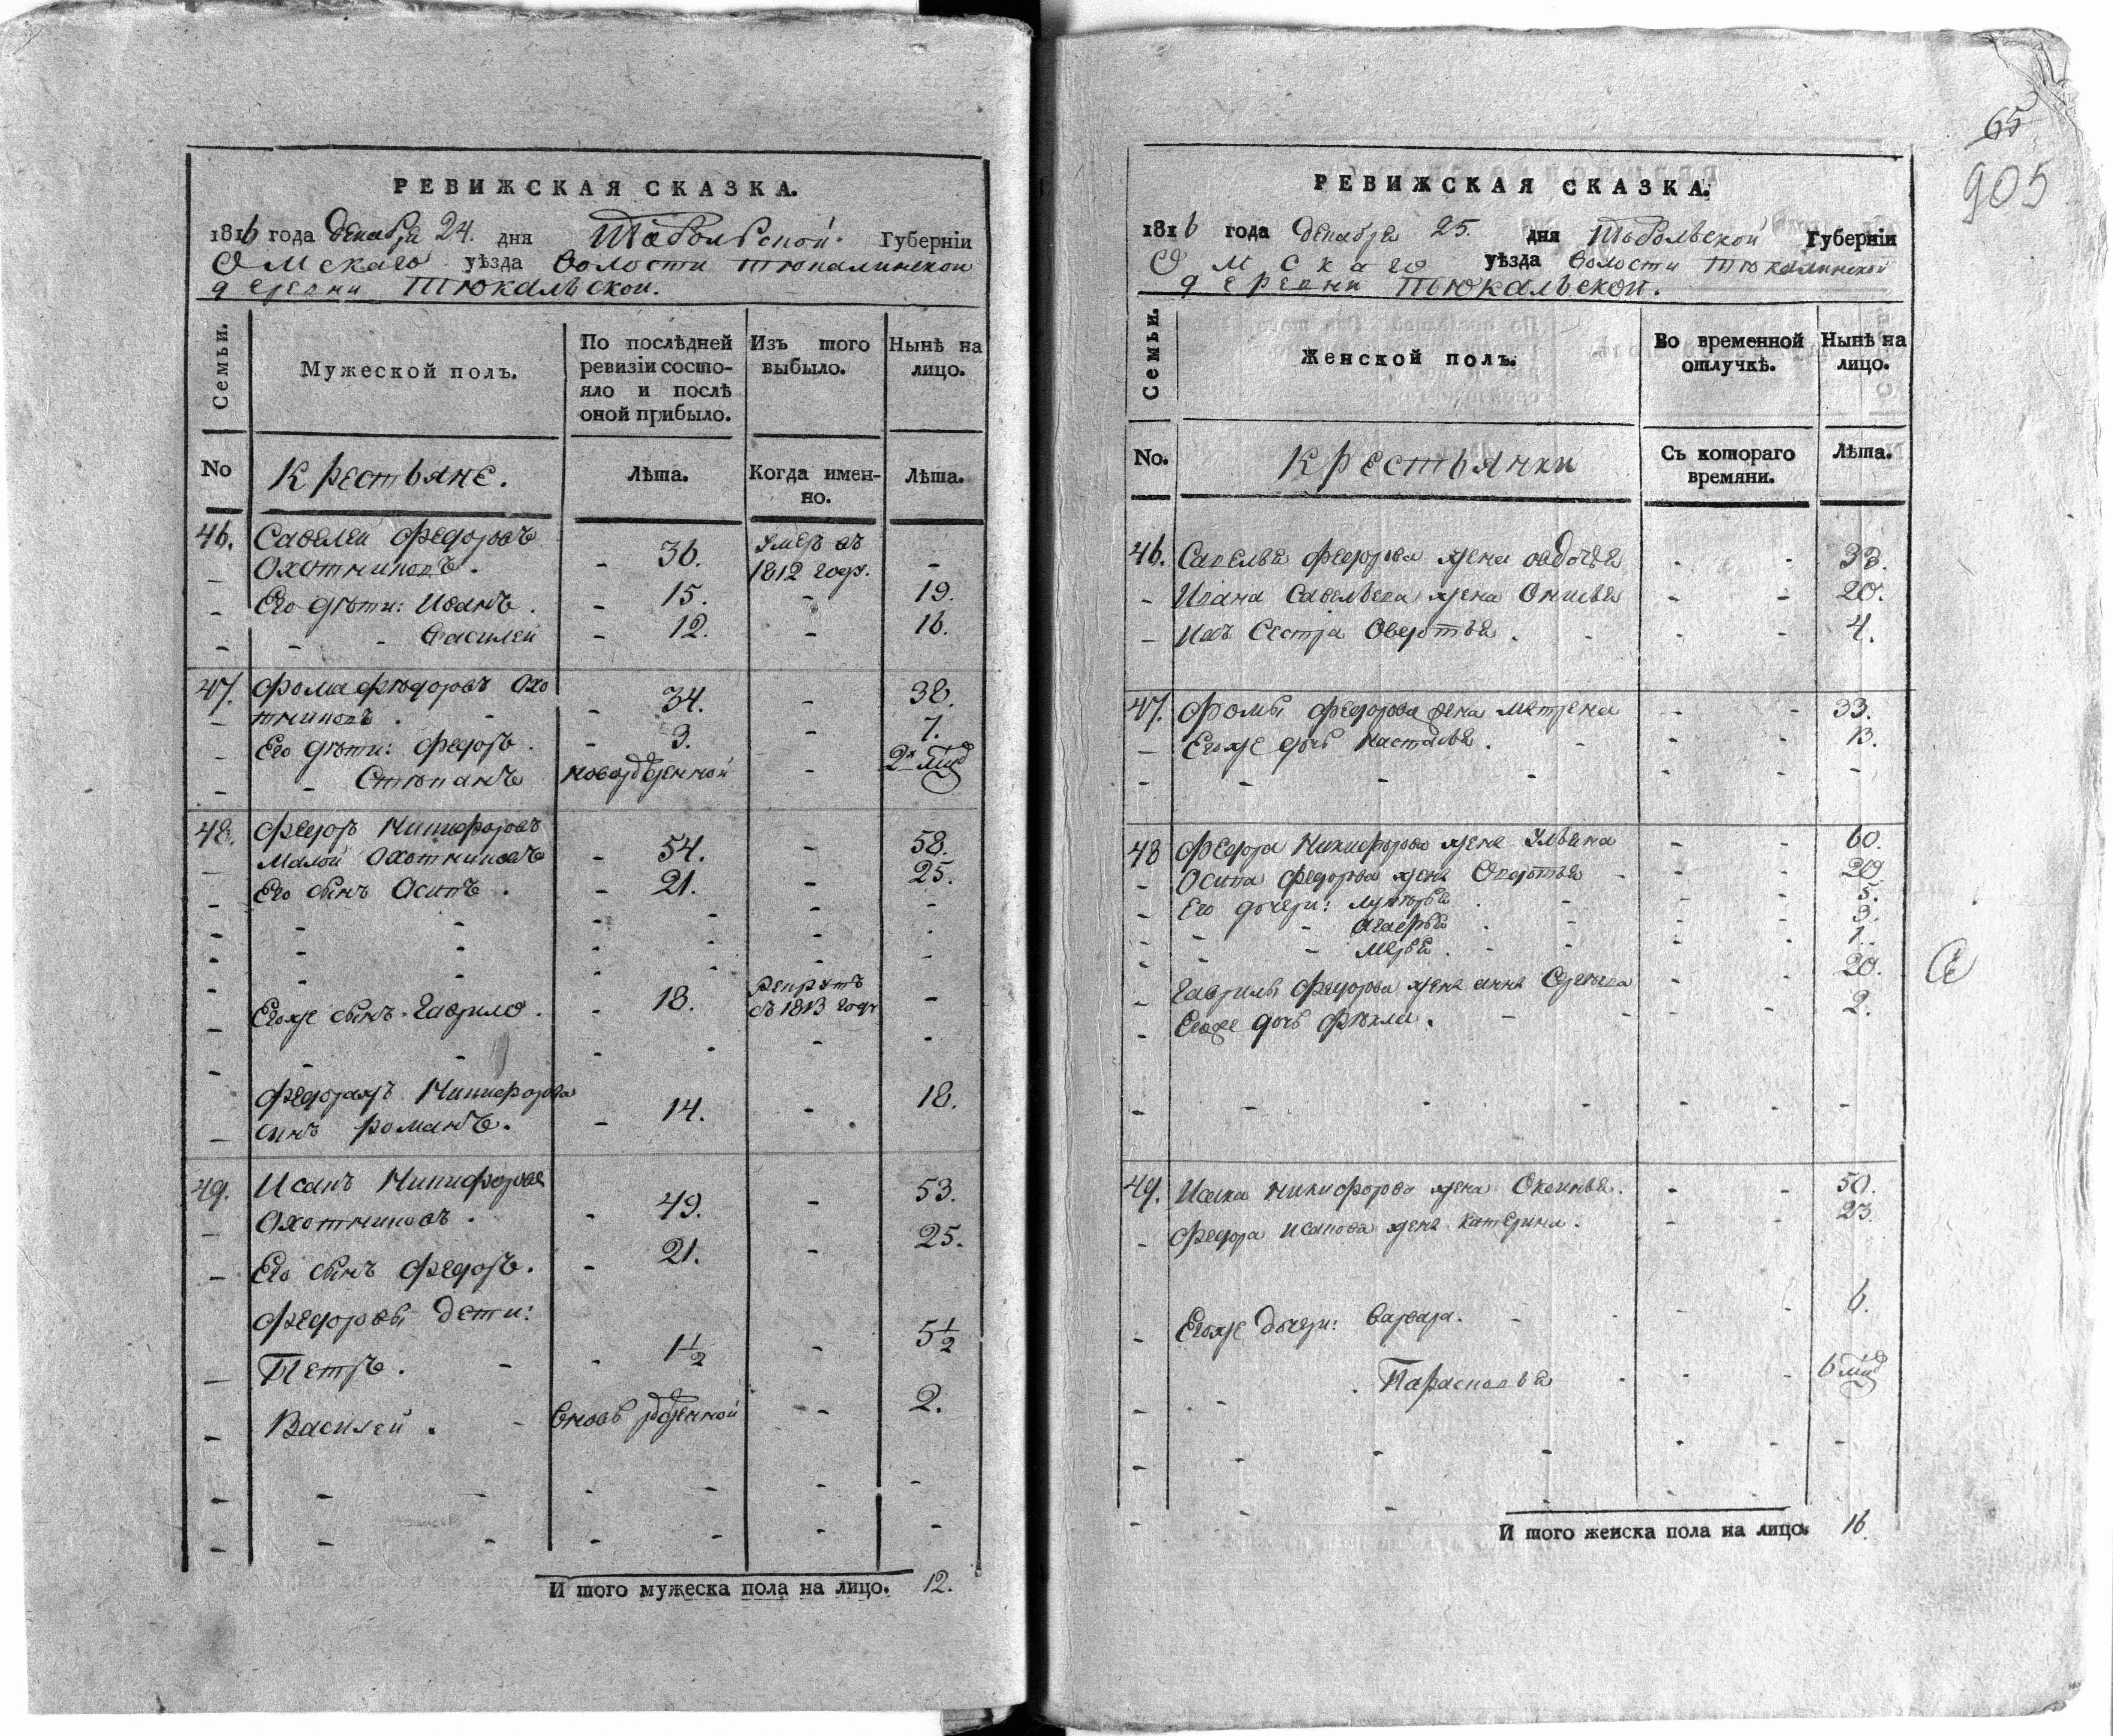 РЕВИЖСКАЯ СКАЗКА.
1816 года декабря 24. дня Тобольской Губернїи
Омскаго уѣзда волости Тюкалинской
деревни Тюкальской.
Семьи.
Мужеской полъ.
По послѣдней ревизїи состо-
яло и послѣ
оной прибыло.
Изъ того
выбыло.
Нынѣ на
лицо.
No
Крестьяне.
Лѣта.
Когда имен-
но.
Лѣта.
46. Савелей Федоровъ
Охотниковъ. - 36. Умеръ въ 1812 году. -
- Его дѣти: Иванъ. - 15. - 19.
- - - Василей - 12. - 16.
47. Фома Фѣдоровъ Охо
- тниковъ. - - 34. - 38.
- Его дѣти: Федоръ. - 3. - 7.
- - Стѣпанъ новорожденной -
48. Федоръ Никифоровъ
- Малой Охотниковъ - 54. - 58.
- Его сынъ Осипъ. - 21. - 25.
- Егоже сынъ Гаврило. - 18. Рекрутъ въ 1813 году -
Федораже Никифорова
- сынъ Романъ. - 14. - 18.
49. Исакъ Никифоровъ
- Охотниковъ. - 49. - 53.
- Его сынъ Федоръ. - 21. - 25.
Федоровы дети:
- Петръ. - - 1 1/2 - 5 1/2
- Василей. - вновь рожденной - 2.
И того мужеска пола на лицо. 12.
65
905
РЕВИЖСКАЯ СКАЗКА.
1816 года декабря 25. дня Тобольской Губернїи
Омскаго уѣзда волости Тюкалинской
деревни Тюкальской.
Семьи.
Женской полъ.
Во временной
отлучкѣ.
Нынѣ на
лицо.
No.
Крестьянки
Съ котораго
времяни.
Лѣта.
46. Савелья Федорова жена Овдотья - - 38.
- Ивана Савельева жена Онисья - - 20.
- Ихъ сестра Овдотья. - - - 4.
47. Фомы Федорова жена Матрена - - 33.
- Егоже дочь Настасья. - - - 13.
48 Федора Никифорова жена Ульяна - - 60.
- Осипа Федорова жена Овдотья - - - 29
- Его дочери: - - - 5.
- - - Агафья . - - 3.
- - - Марья. - - - - 1.
- Гаврилы Федорова жена Анна - - 20.
- Егоже дочь Фѣкла. - - - - 2.
49. Исака Никифорова жена Оксинья. - - 50.
- Федора Исакова жена Катерина. - - 23.
- Егоже дочери: Варвара. - - - 6.
- - - Парасковья - - -
И того женска пола на лицо. 16.